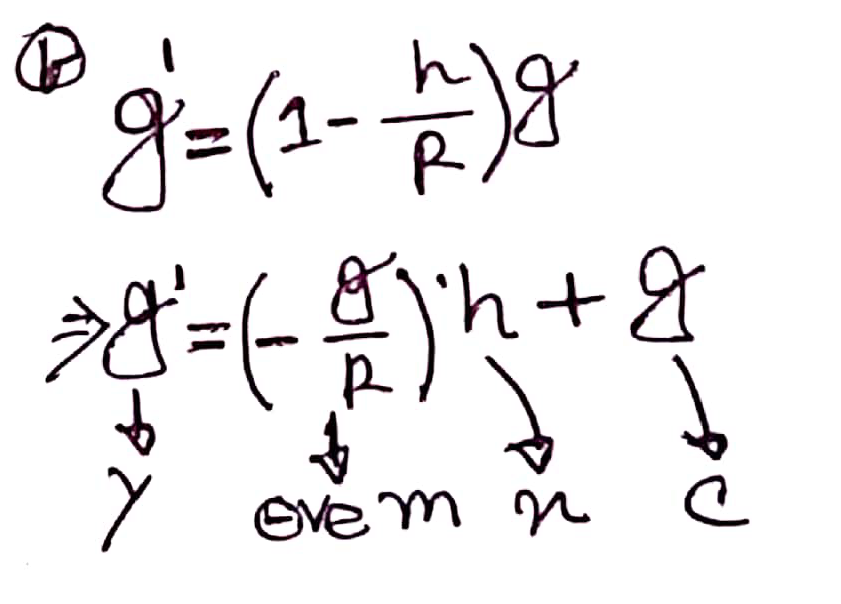 ⓑ g' = (1 - h/R) g
⇒ g' = (- g/R) · h + g
y ⊖ve m x c